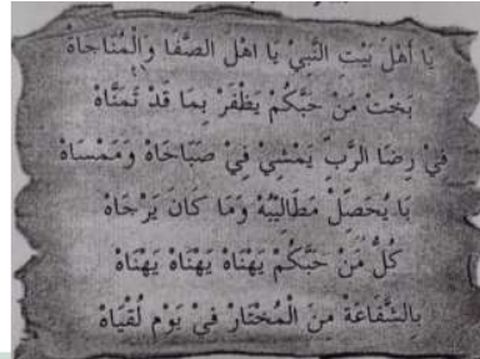 يَا أَهْلَ بَيْتِ النَّبِيْ يَا اهْلَ الصَّفَا وَالْمُنَاجَاةْ
بَخْتْ مَنْ حَبَّكُمْ يَظْفَرْ بِمَا قَدْ تَمَنَّاهْ
فِيْ رِضَا الرَّبِّ يَمْشِيْ فِيْ صَبَاحَاهْ وَمَمْسَاهْ
بَا يُحَصِّلْ مَطَالِيْبُهْ وَمَا كَانَ يَرْجَاهْ
كُلُّ مَنْ حَبَّكُمْ يَهْنَاهْ يَهْنَاهْ يَهْنَاهْ
بِالشَّفَاعَةْ مِنَ الْمُخْتَارْ فِيْ يَوْمِ لُقْيَاهْ